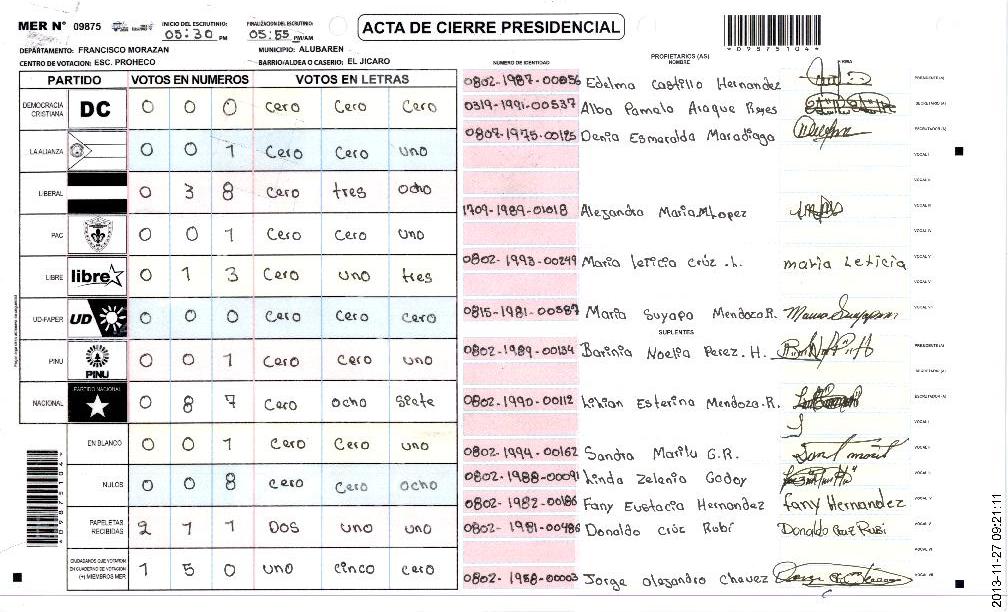 MER Nº 09875
INICIO DEL ESCRUTINIO: 05:30 PM
FINALIZACION DEL ESCRUTINIO: 05:55 PM/AM
ACTA DE CIERRE PRESIDENCIAL
*09875104*
DEPARTAMENTO: FRANCISCO MORAZAN MUNICIPIO: ALUBAREN
CENTRO DE VOTACION: ESC. PROHECO BARRIO/ALDEA O CASERIO: EL JICARO
PARTIDO VOTOS EN NUMEROS VOTOS EN LETRAS
DEMOCRACIA CRISTIANA DC 0 0 0 cero Cero Cero
LA ALIANZA 0 0 1 Cero Cero uno
LIBERAL 0 3 8 cero tres ocho
PAC 0 0 1 cero cero uno
LIBRE libre 0 1 3 Cero uno tres
UD-FAPER UD 0 0 0 cero Cero cero
PINU PINU 0 0 1 Cero Cero uno
NACIONAL PARTIDO NACIONAL 0 8 7 Cero ocho siete
EN BLANCO 0 0 1 cero Cero uno
NULOS 0 0 8 cero Cero ocho
PAPELETAS RECIBIDAS 2 1 1 DOS uno uno
CIUDADANOS QUE VOTARON EN CUADERNO DE VOTACION (+) MIEMBROS MER 1 5 0 uno cinco cero
NUMERO DE IDENTIDAD PROPIETARIOS (AS) NOMBRE FIRMA
0802-1987-00056 Edelma Castillo Hernandez PRESIDENTE (A)
0319-1991-00537 Alba Pamela Araque Reyes SECRETARIO (A)
0807-1975-00125 Denia Esmeralda Maradiaga ESCRUTADOR (A)
VOCAL I
VOCAL II
1709-1989-01018 Alejandra Maria M Lopez VOCAL III
VOCAL IV
0802-1993-00249 Maria leticia Crúz .L. maria Leticia VOCAL V
0815-1981-00587 Maria Suyapa Mendoza R. VOCAL VII
SUPLENTES
0802-1989-00134 Barinia Noelia Perez. H. PRESIDENTE (A)
SECRETARIO (A)
0802-1990-00112 Lilian Esterina Mendoza.R. ESCRUTADOR (A)
VOCAL I
0802-1994-00162 Sandra Marilu G.R.
0802-1988-00091 Linda Zelenia Godoy
0802-1982-00186 Fany Eustacia Hernandez Fany Hernandez
0802-1981-00486 Donaldo crúz Rubí Donaldo Cruz Rubi
0802-1958-00003 Jorge alejandro chavez
*09875104*
2013-11-27 09:21:11